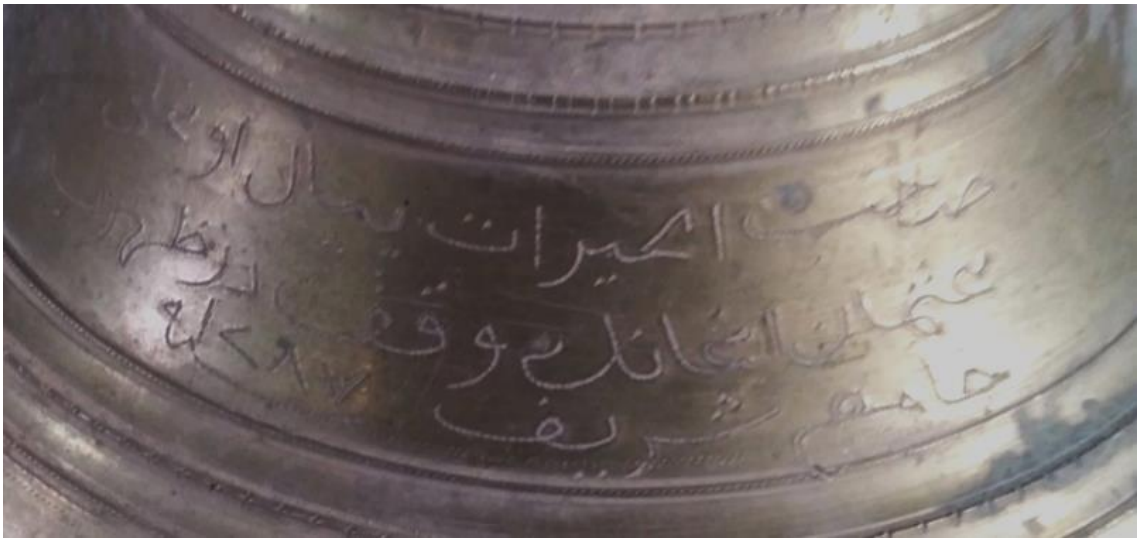 صاحب الخيرات يمال اوغلى
عثمان اغانك وقف
جامع شريف